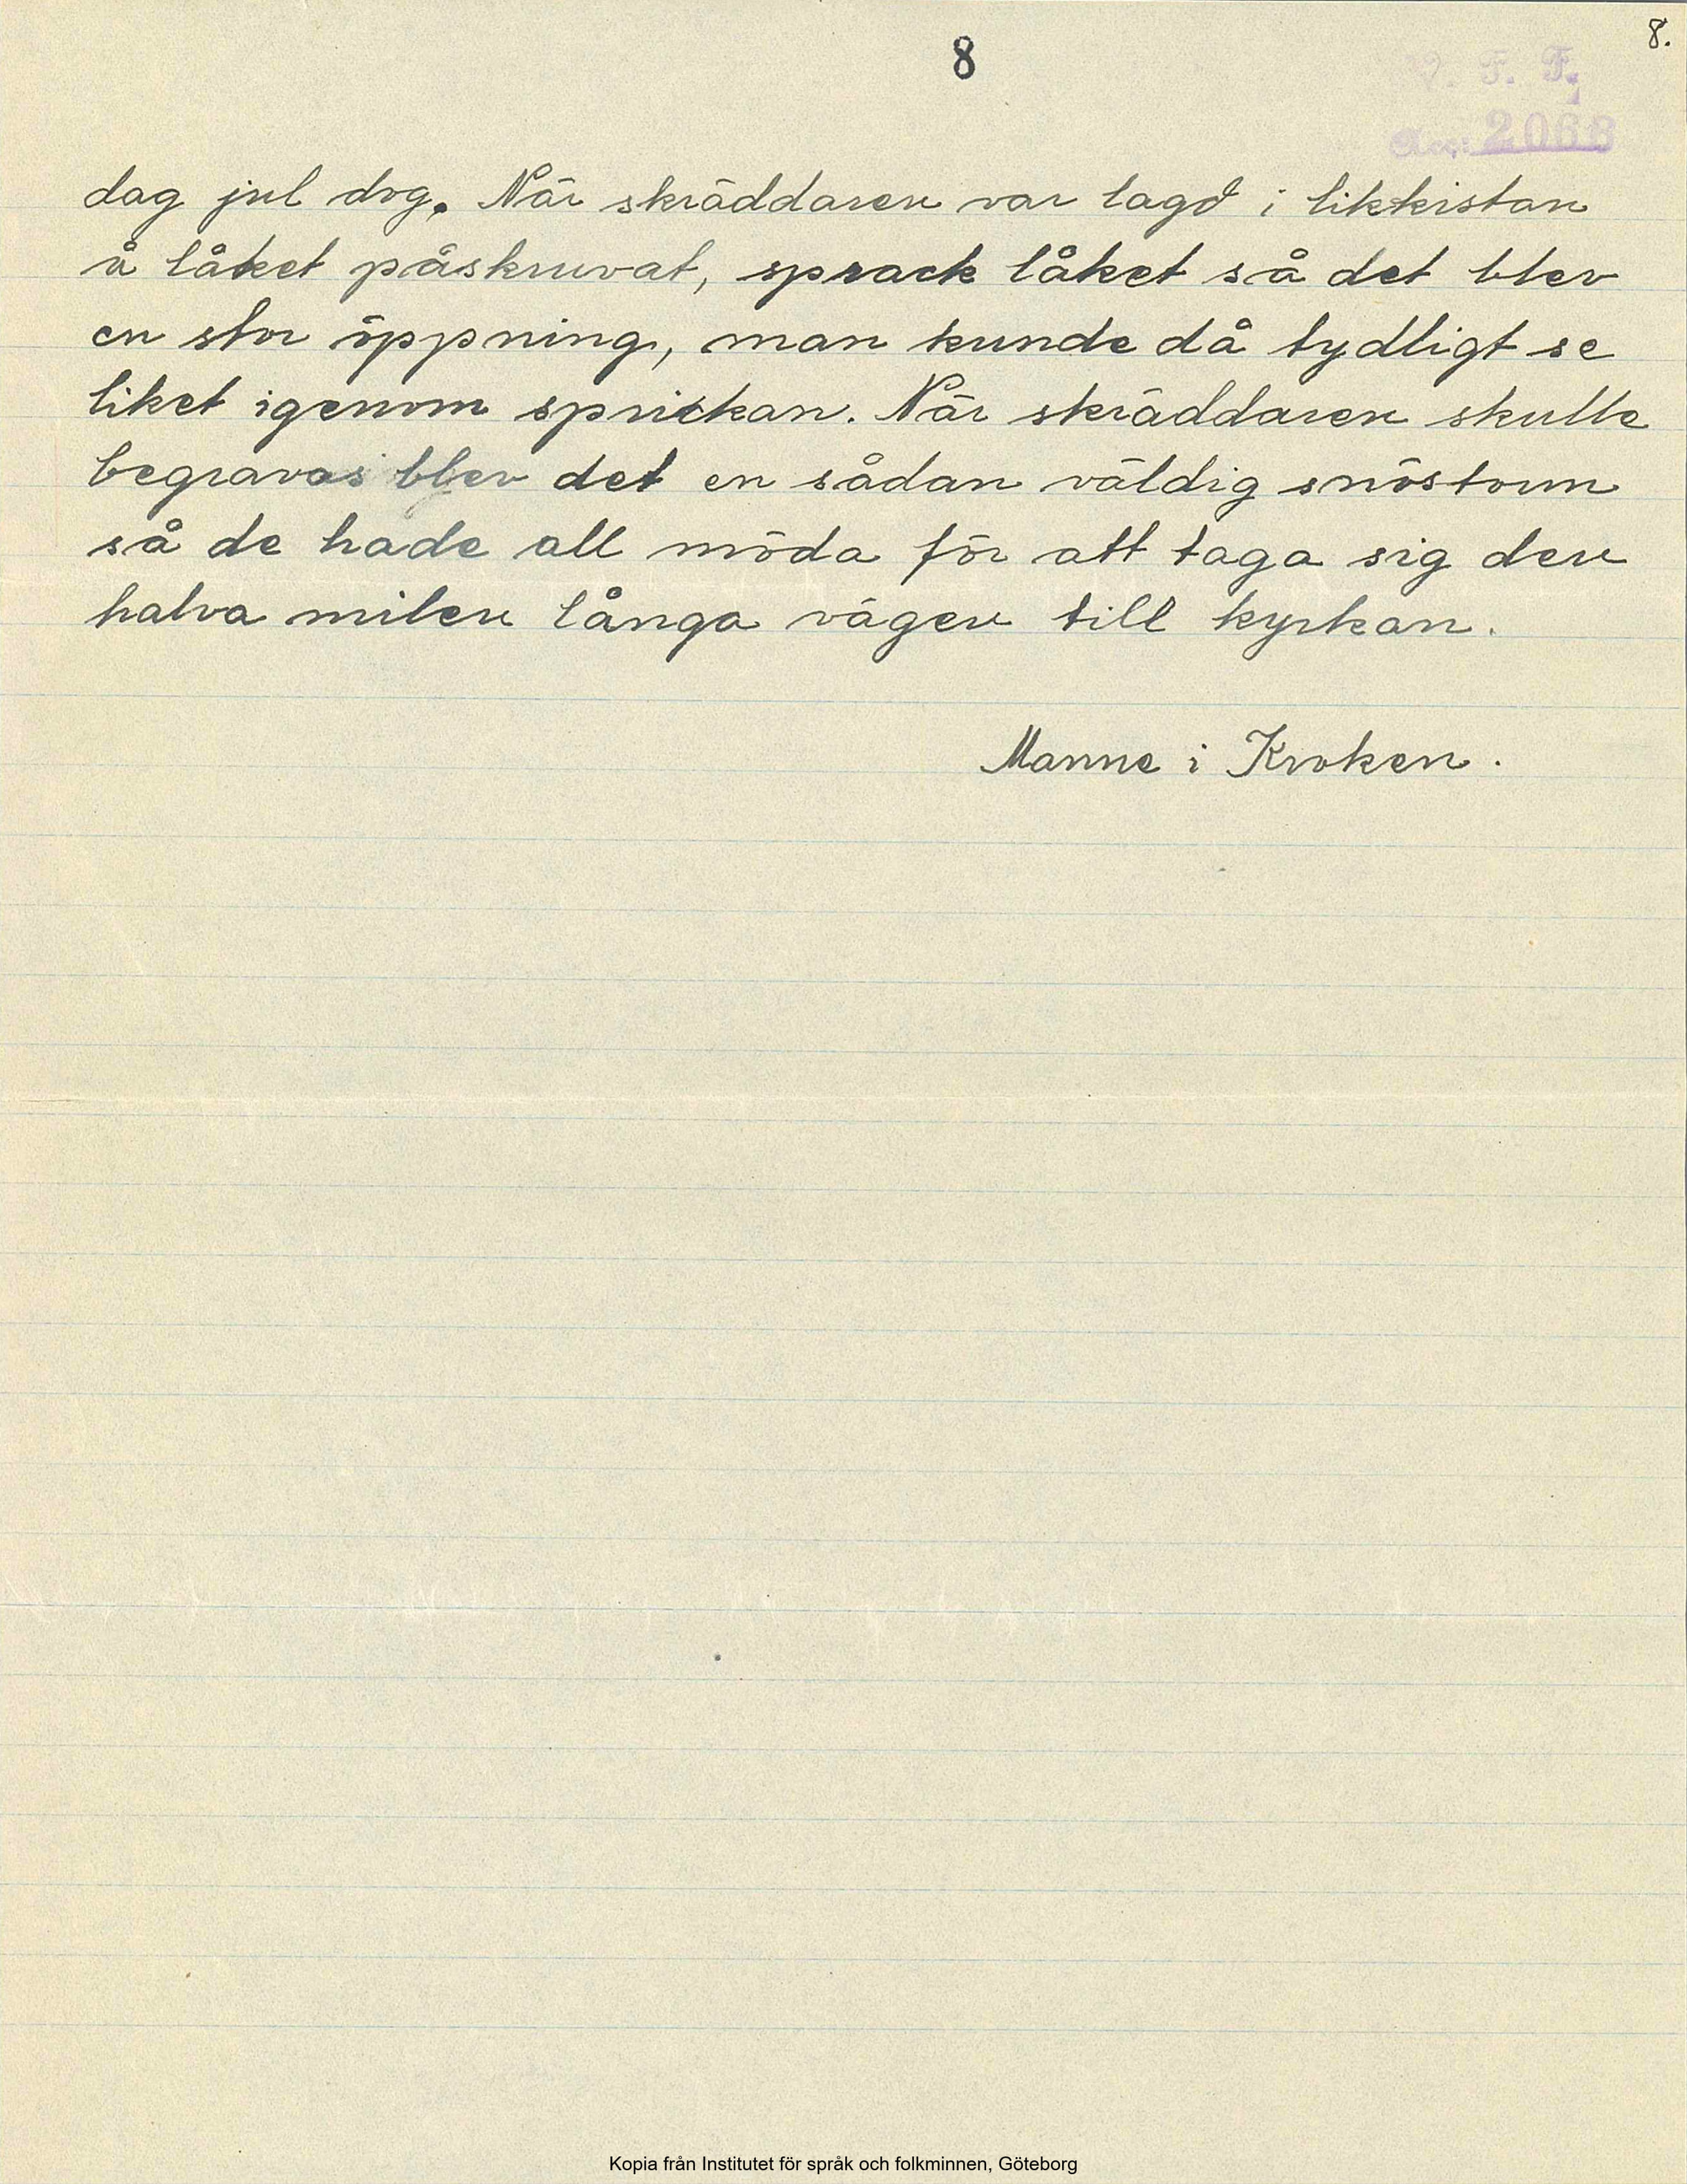 8.
8
V. F. F.
Acc: 2068
dag jul dog. När skräddaren var lagd i likkistan
å låket påskruvat, sprack låket så det blev
en stor öppning, man kunde då tydligt se
liket igenom sprickan. När skräddaren skulle
begravas blev det en sådan väldig snöstorm
så de hade all möda för att taga sig den
halva milen långa vägen till kyrkan.
Manne i Kroken.
Kopia från Institutet för språk och folkminnen, Göteborg